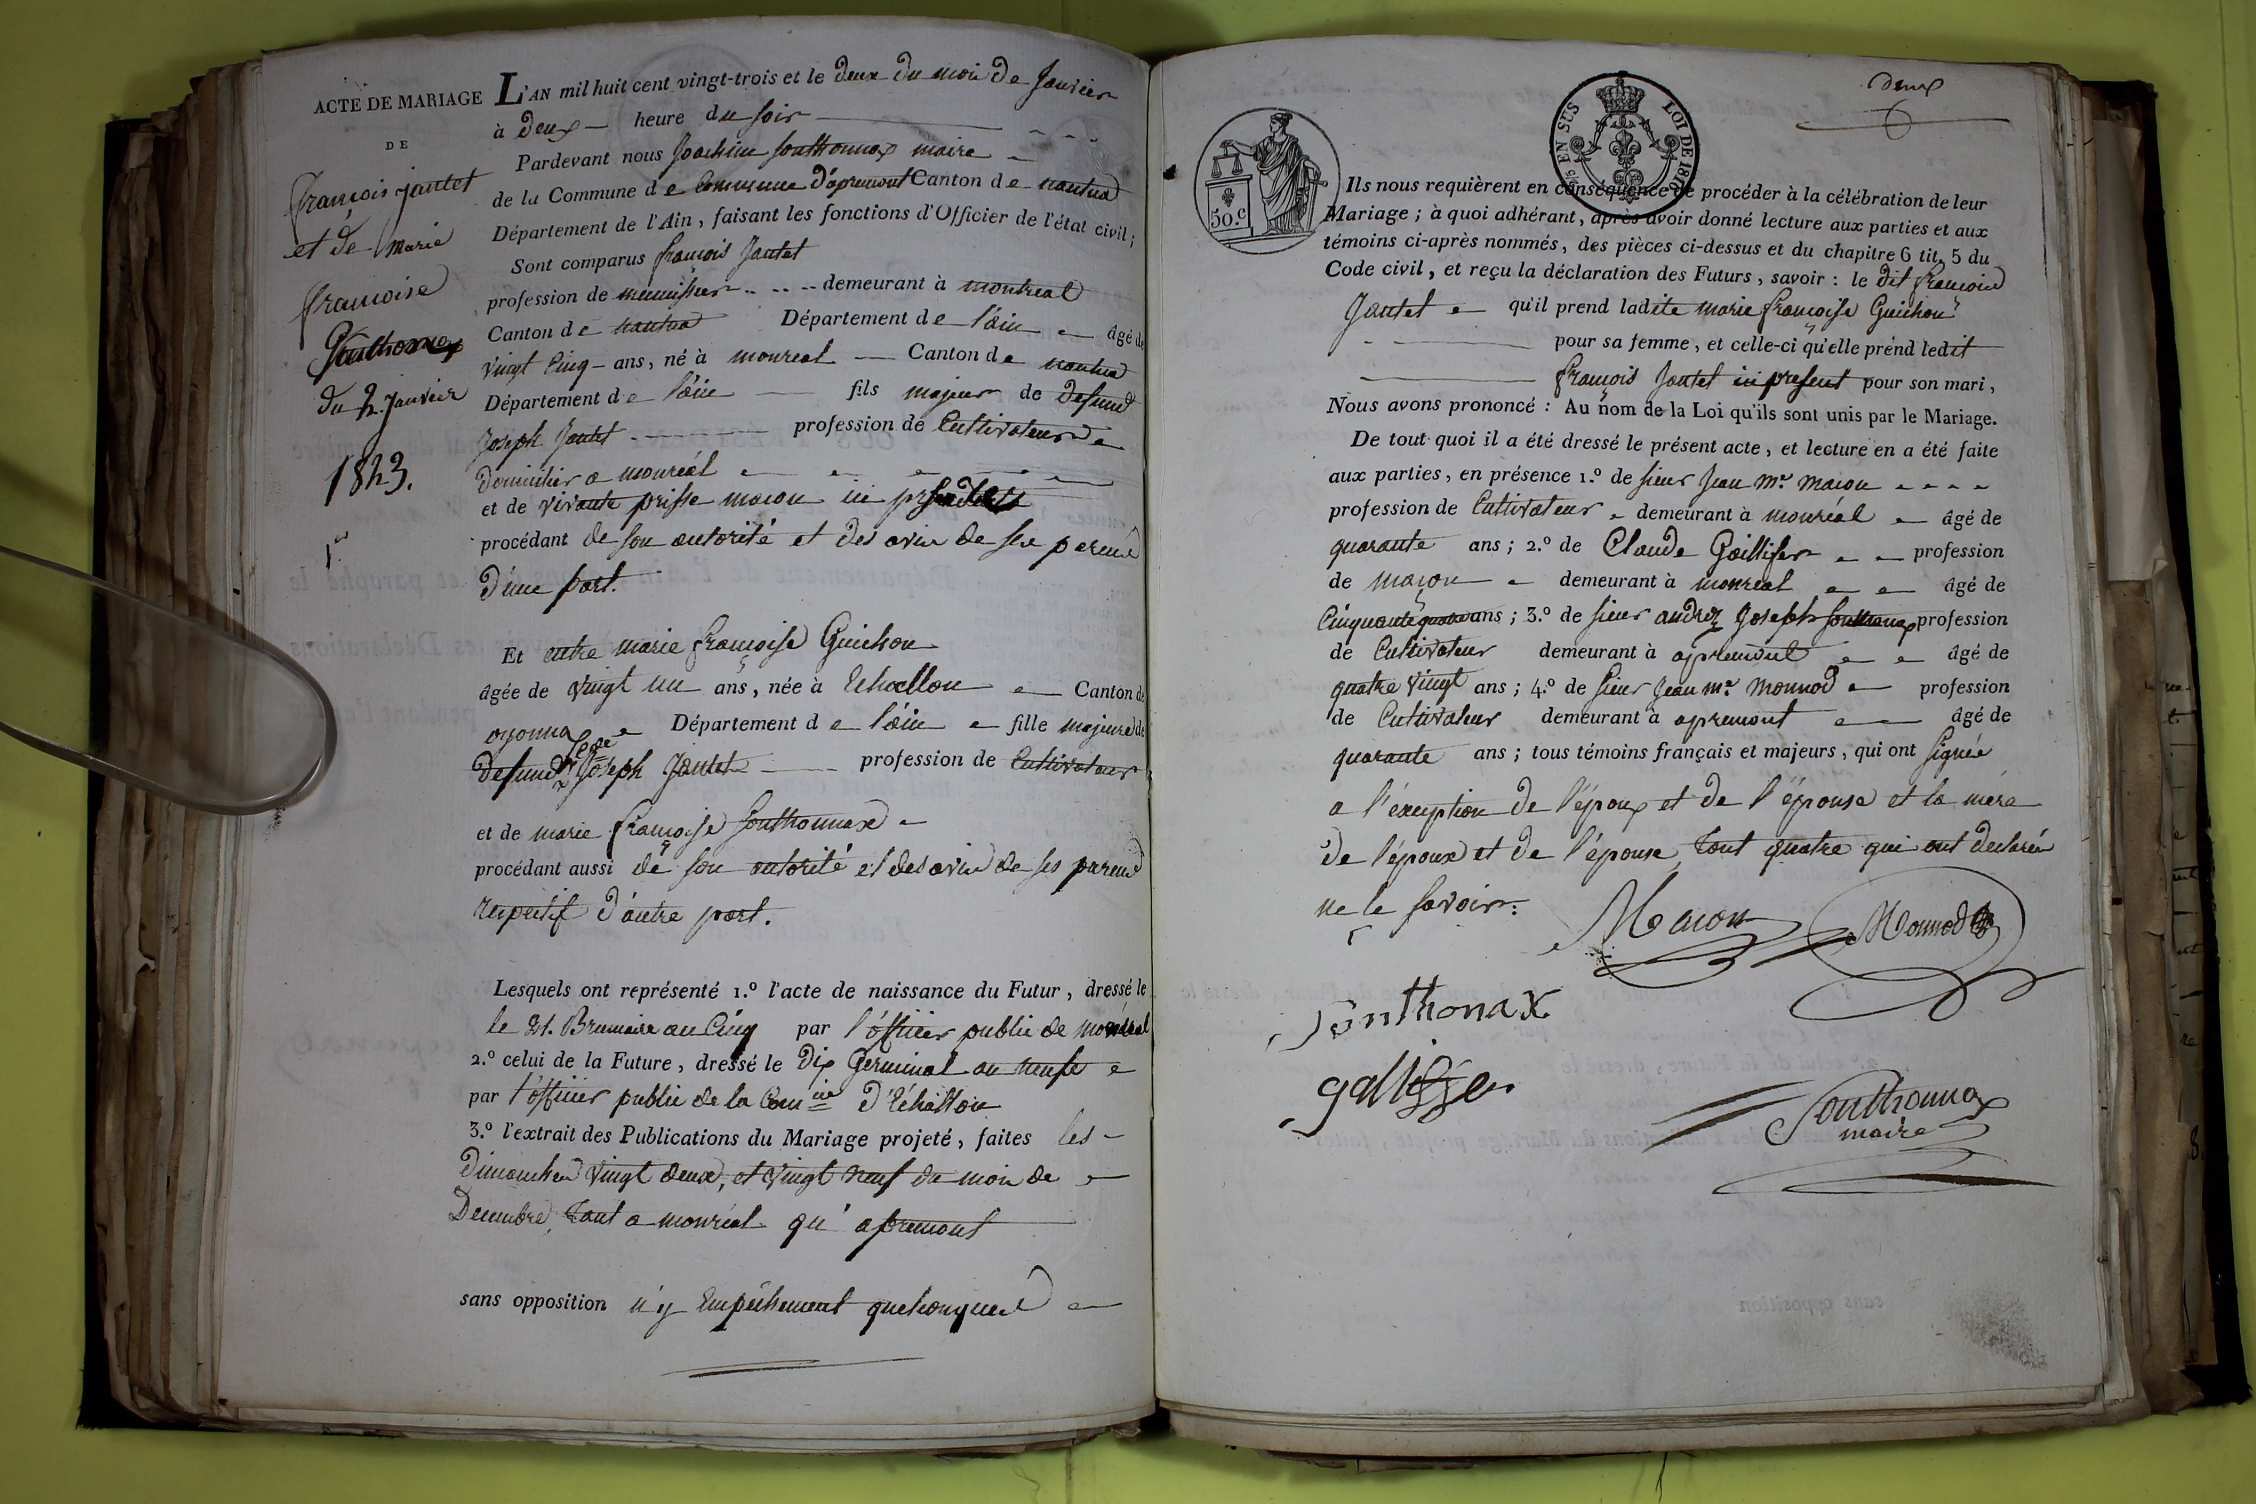 ACTE DE MARIAGE
DE
françois jantet
et de marie
françoise
Sonthonax
du 2 janvier
1823.
1er
L'AN mil huit cent vingt-trois et le deux du mois De Janvier
à Deux heure du soir
Pardevant nous Joachim Sonthonnax maire
de la Commune de Commune D'apremont Canton de nantua
Département de l'Ain, faisant les fonctions d'Officier de l'état civil;
Sont comparus françois Jantet
profession de menuisier demeurant à montreal
Canton de nantua Département de l'ain âgé de
vingt cinq ans, né à monreal Canton de nantua
Département de l'ain fils majeur de defunt
Joseph Jantet profession de Cultivateur
Domicilier a monréal
et de vivante prisse macon ici
procédant de son autorité et des avis de ses parend
D'une part.
Et entre marie françoise Guichon
âgée de vingt un ans, née à Echallon Canton de
oyonna Département de l'ain fille majeure de
defund Joseph Jantet profession de Cultivateur
et de marie françoise Sonthonnax
procédant aussi de son autorité et des avis de ses parend
respectif D'autre part.
Lesquels ont représenté 1.º l'acte de naissance du Futur, dressé le
le 21. Brumaire an Cinq par l'officier public de monréal
2.º celui de la Future, dressé le Dix Germinal an neufe
par l'officier public de la Comne D'Echallon
3.º l'extrait des Publications du Mariage projeté, faites les
Dimanches vingt deux, et vingt neuf du mois de
Decembre, tant a monréal qu'apremont
sans opposition n'y Empêchement quelconque
deux
50.c
EN SUS
LOI DE 1816
Ils nous requièrent en conséquence de procéder à la célébration de leur
Mariage; à quoi adhérant, après avoir donné lecture aux parties et aux
témoins ci-après nommés, des pièces ci-dessus et du chapitre 6 tit. 5 du
Code civil, et reçu la déclaration des Futurs, savoir: le dit françois
Jantet qu'il prend ladite marie françoise Guichon
pour sa femme, et celle-ci qu'elle prend ledit
françois Jantet ici present pour son mari,
Nous avons prononcé: Au nom de la Loi qu'ils sont unis par le Mariage.
De tout quoi il a été dressé le présent acte, et lecture en a été faite
aux parties, en présence 1.º de sieur Jean me. macon
profession de Cultivateur demeurant à monréal âgé de
quarante ans; 2.º de Claude Gaillisser profession
de maçon demeurant à monreal âgé de
Cinquante quatre ans; 3.º de sieur andrez Joseph Sonthonax profession
de Cultivateur demeurant à apremont âgé de
quatre vingt ans; 4.º de sieur Jean me. monnod profession
de Cultivateur demeurant à apremont âgé de
quarante ans; tous témoins français et majeurs, qui ont signée
a l'éxception de l'époux et de l'épouse et la mére
de l'époux et de l'épouse, tout quatre qui ont declarée
ne le savoir.
Macon Monnod
Sonthonax
gallisser
Sonthonnax
maire